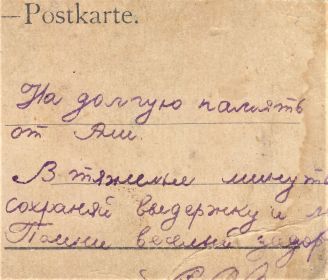 —Postkarte.
На долгую память
от Ани.
В тяжелые минуты
сохраняй выдержку и
Помни веселый задор